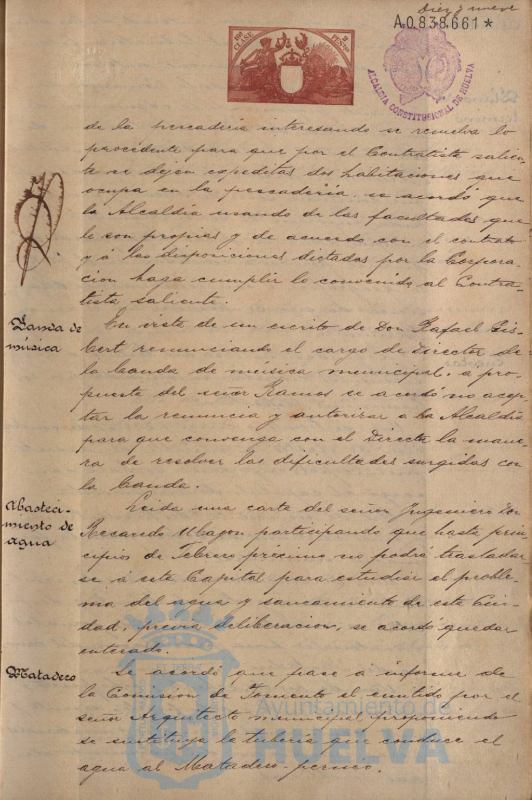 Diez y nueve
A0.838.661*
10ª CLASE
2 PESETAS
ALCALDIA CONSTITUCIONAL DE HUELVA
de la pescaderia interesando se resuelva lo
procedente para que por el Contratista salien-
te se dejen expeditas dos habitaciones que
ocupa en la pescaderia. se acordó que
la Alcaldia usando de las facultades que
le son propias y de acuerdo con el contrato
y á las disposiciones dictadas por la Corpora-
cion haga cumplir lo convenido al Contra-
tista saliente.
Banda de
música
En vista de un escrito de Don Rafael Gis-
bert renunciando el cargo de Director de
la banda de musica municipal, a pro-
puesta del señor Ramos se acordó no acep-
tar la renuncia y autorizar a la Alcaldia
para que convenga con el Director la mane-
ra de resolver las dificultades surgidas con
la banda.
Abasteci-
miento de
agua
Leida una carta del señor Ingeniero Don
Recaredo Uhagon, participando que hasta prin-
cipios de Febrero próximo no podrá trasladar
se á esta Capital para estudiar el proble-
ma del agua y saneamiento de esta Ciu-
dad, previa deliberacion, se acordó quedar
enterado.
Matadero
Se acordó que pase a informe de
la Comision de Fomento el emitido por el
señor Arquitecto municipal proponiendo
se sustituya la tuberia que conduce el
agua al Matadero-perneo.
Ayuntamiento de
HUELVA